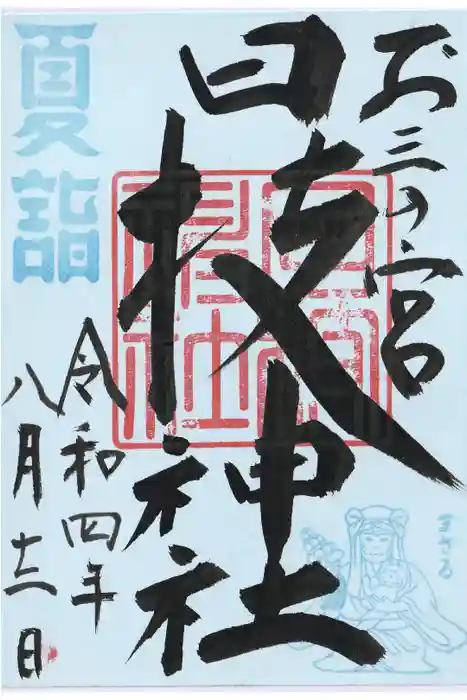 お三の宮
日枝神社
夏詣
令和四年
八月十三日
まさる